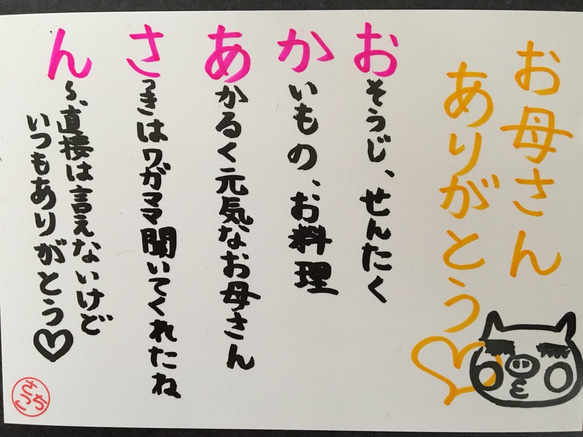 お母さん
ありがとう
おそうじ、せんたく
かいもの、お料理
あかるく元気なお母さん
さっきはワガママ聞いてくれたね
ん〜、直接は言えないけど
いつもありがとう♡